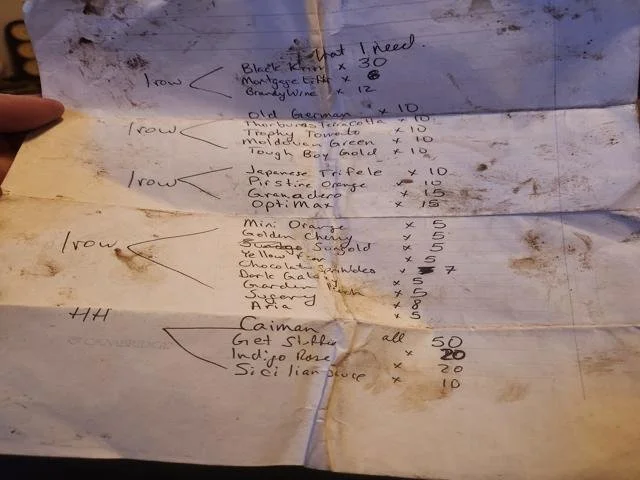 What I need.
1 row
Black Krim x 30
Mortgage Lifter x 6
BrandyWine x 12
1 row
Old German x 10
Thorburns Terracotta x 10
Trophy Tomato x 10
Moldovan Green x 10
Tough Boy Gold x 10
1 row
Japanese Trifele x 10
Piristine Orange x 10
Granadero x 15
OptiMax x 15
1 row
Mini Orange x 5
Golden Cherry x 5
Sungold x 5
Yellow x 5
Chocolate Sprinkles x 7
Dark Gala x 5
Garden x 5
Sugary x 8
Aria x 5
HH
Caiman all 50
Get Stuffed x 20
Indigo Rose x 20
Sicilian x 10
CAMBRIDGE